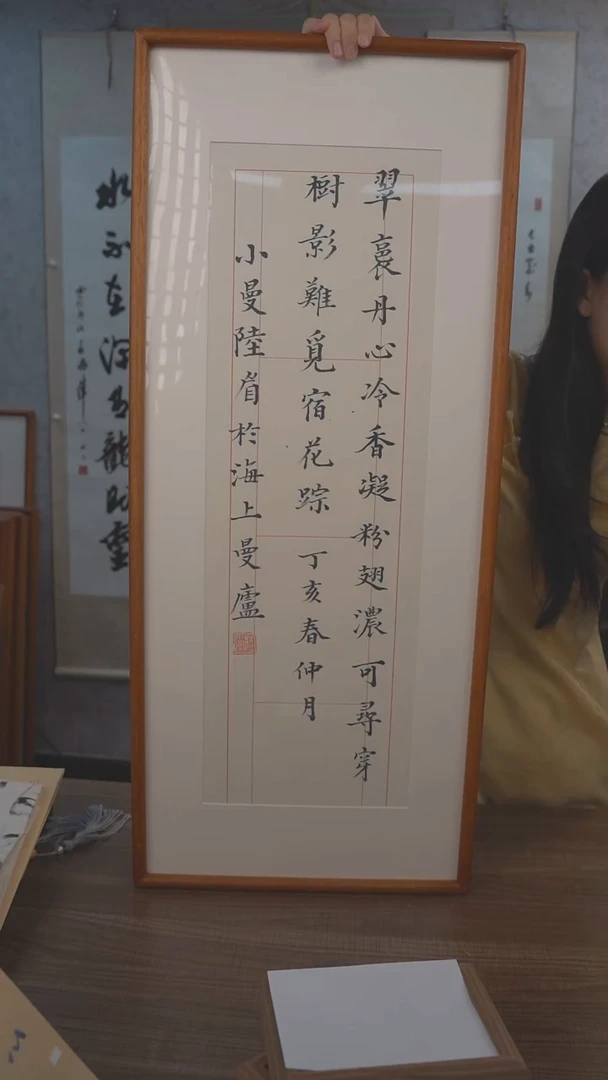 翠裛丹心冷香凝粉翅濃可尋穿
樹影難覓宿花踪 丁亥春仲月
小曼陸眉於海上曼廬
水不在深有龍則靈